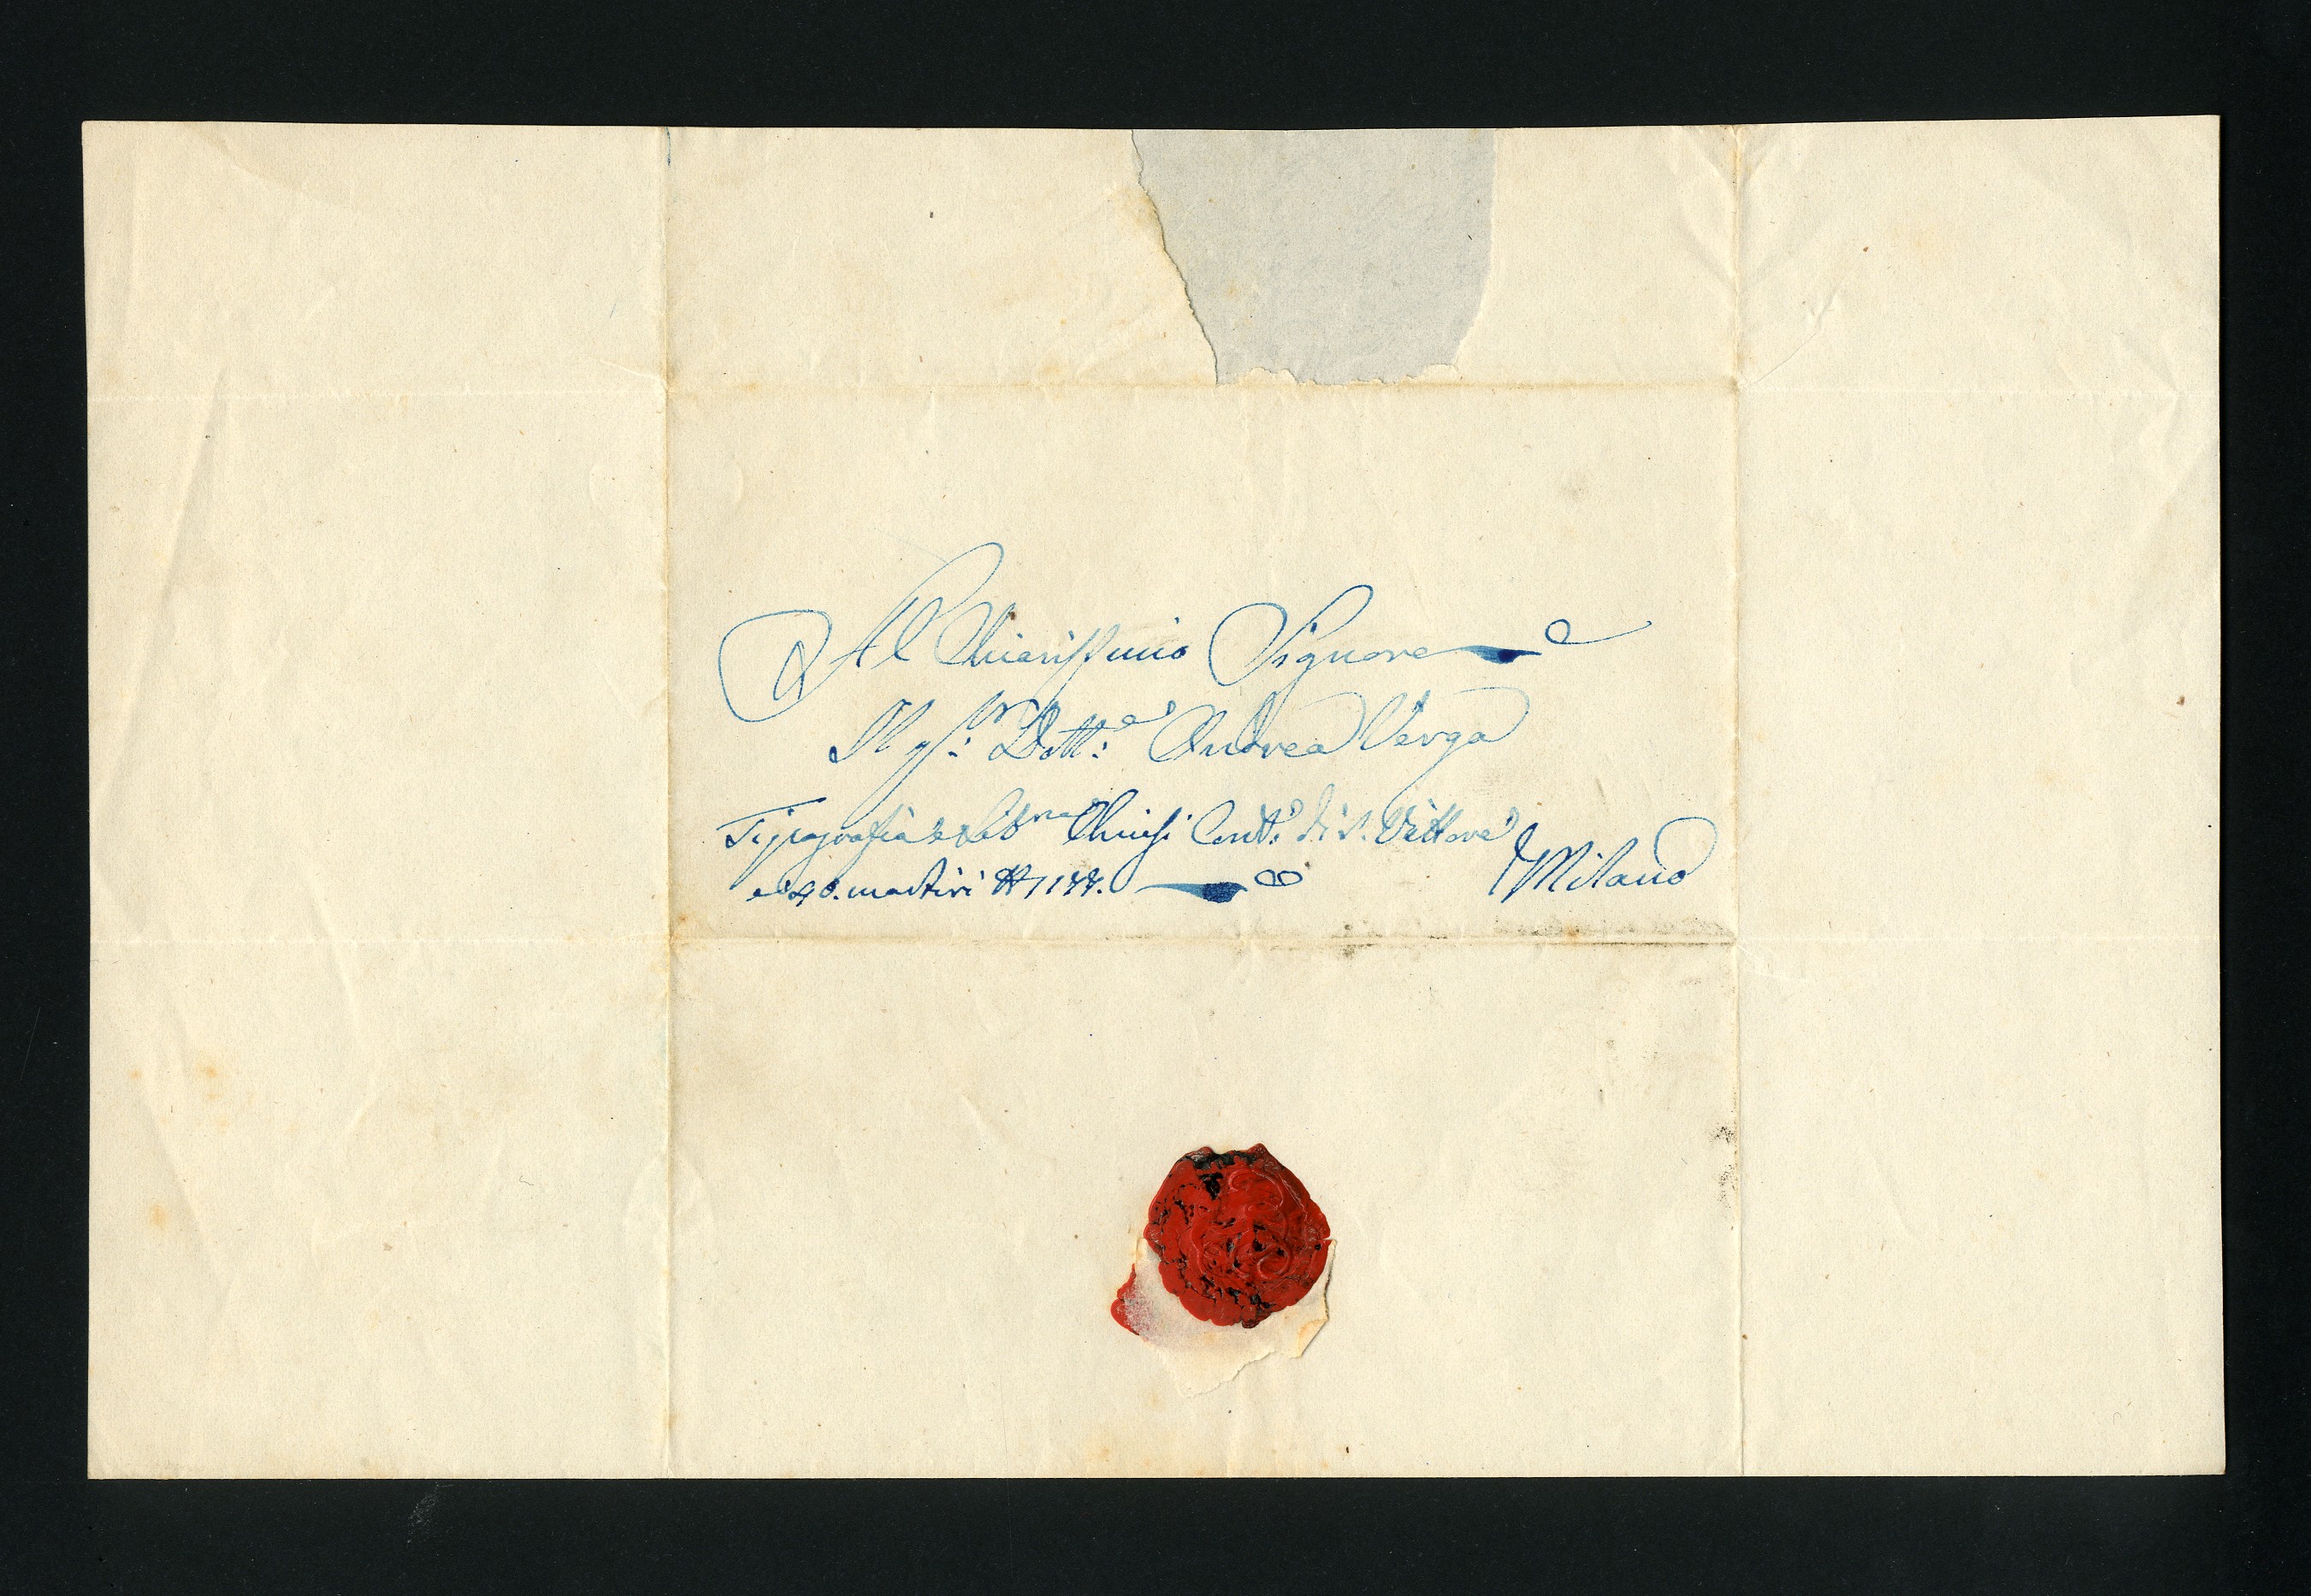 Al Chiarissimo Signore
Il Sig.r Dott.e Andrea Verga
Tipografia e Lib.ria Chiusi Cont.a di S. Vittore
e 40. martiri N. 1177.
Milano